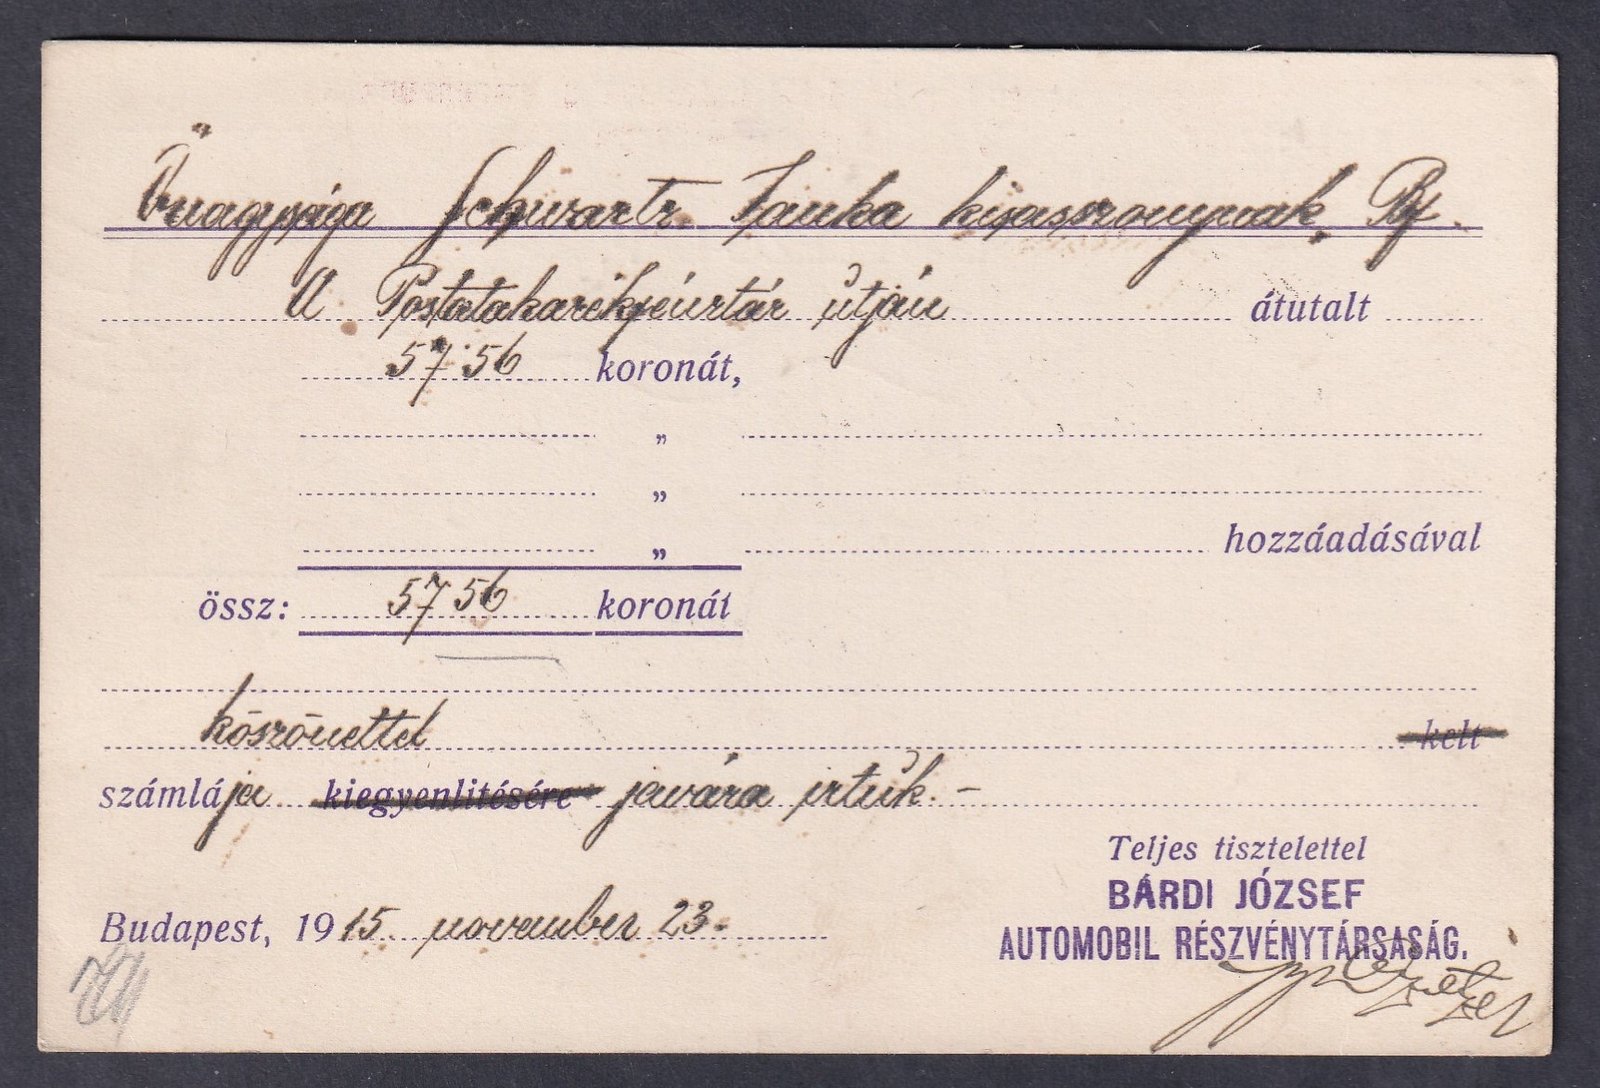 Őnagysága Schwartz Janka kisasszonynak, Bp.
A Postatakarékpénztár útján átutalt
57.56 koronát,
"
"
" hozzáadásával
össz: 57 56 koronát
köszönettel kelt
számlája kiegyenlitésére javára irtuk. -
Teljes tisztelettel
BÁRDI JÓZSEF
AUTOMOBIL RÉSZVÉNYTÁRSASÁG.
Budapest, 1915. november 23.